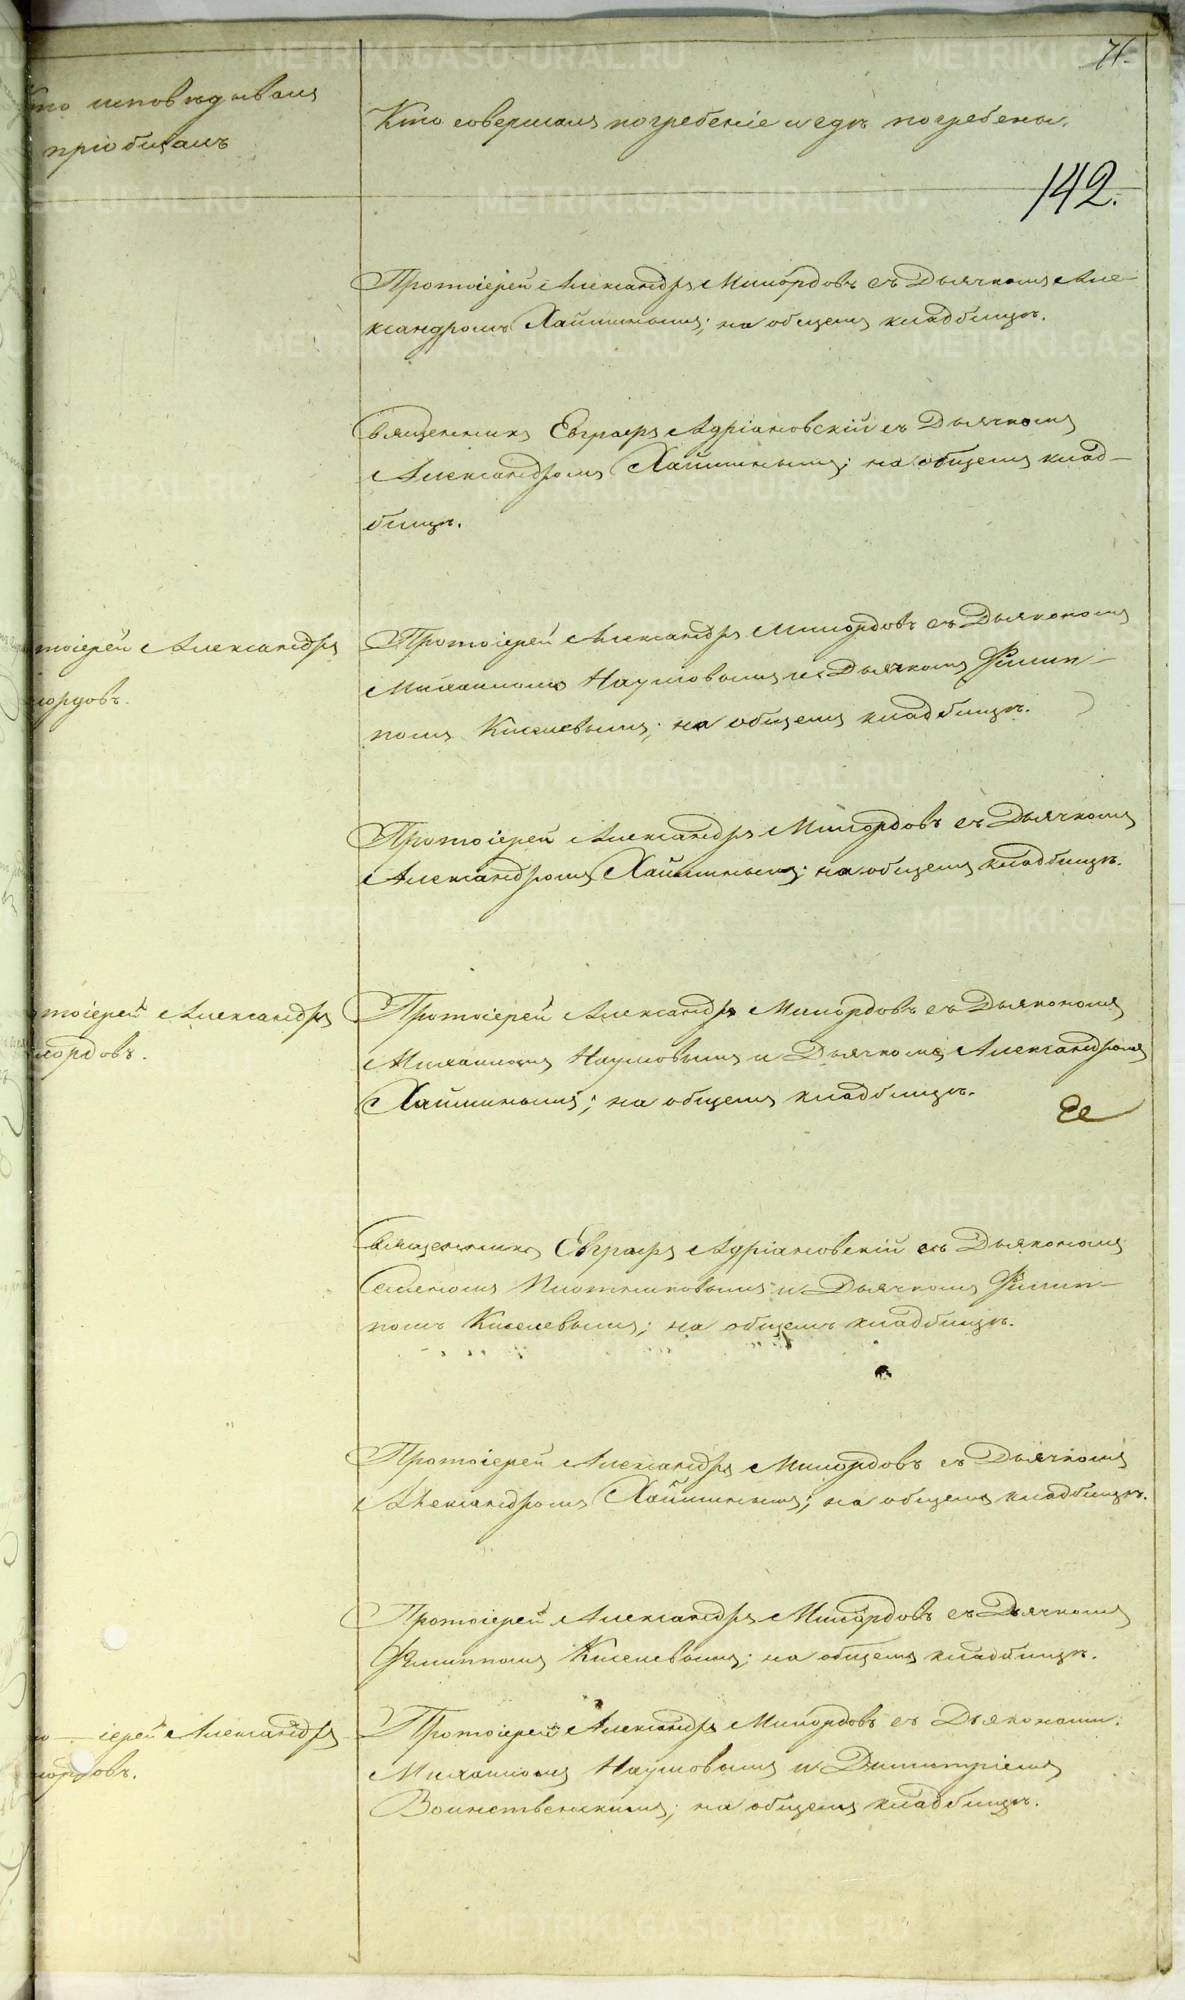 71.
Кто исповѣдывалъ
пріобщалъ
Кто совершалъ погребеніе и гдѣ погребены.
142.
Протоіерей Александръ Милордовъ съ Дьячкомъ Але-
ксандромъ Хайминымъ; на общемъ кладбищѣ.
Священникъ Евграфъ Адріановскій съ Дьячкомъ
Александромъ Хайминымъ; на общемъ клад-
бищѣ.
тоіерей Александръ
лордовъ.
Протоіерей Александръ Милордовъ съ Дьякономъ
Михаиломъ Наумовымъ и Дьячкомъ Филип-
помъ Киселевымъ; на общемъ кладбищѣ.
Протоіерей Александръ Милордовъ съ Дьячкомъ
Александромъ Хайминымъ; на общемъ кладбищѣ.
тоіерей Александръ
лордовъ.
Протоіерей Александръ Милордовъ съ Дьякономъ
Михаиломъ Наумовымъ и Дьячкомъ Александромъ
Хайминымъ; на общемъ кладбищѣ.
Священникъ Евграфъ Адріановскій съ Дьякономъ
Семеномъ Плотниковымъ и Дьячкомъ Филип-
помъ Киселевымъ; на общемъ кладбищѣ.
Протоіерей Александръ Милордовъ съ Дьячкомъ
Александромъ Хайминымъ; на общемъ кладбищѣ.
Протоіерей Александръ Милордовъ съ Дьячкомъ
Филиппомъ Киселевымъ; на общемъ кладбищѣ.
то-іерей Александръ
лордовъ.
Протоіерей Александръ Милордовъ съ Дьяконами:
Михаиломъ Наумовымъ и Димитріемъ
Воинственскимъ; на общемъ кладбищѣ.
METRIKI.GASO-URAL.RU